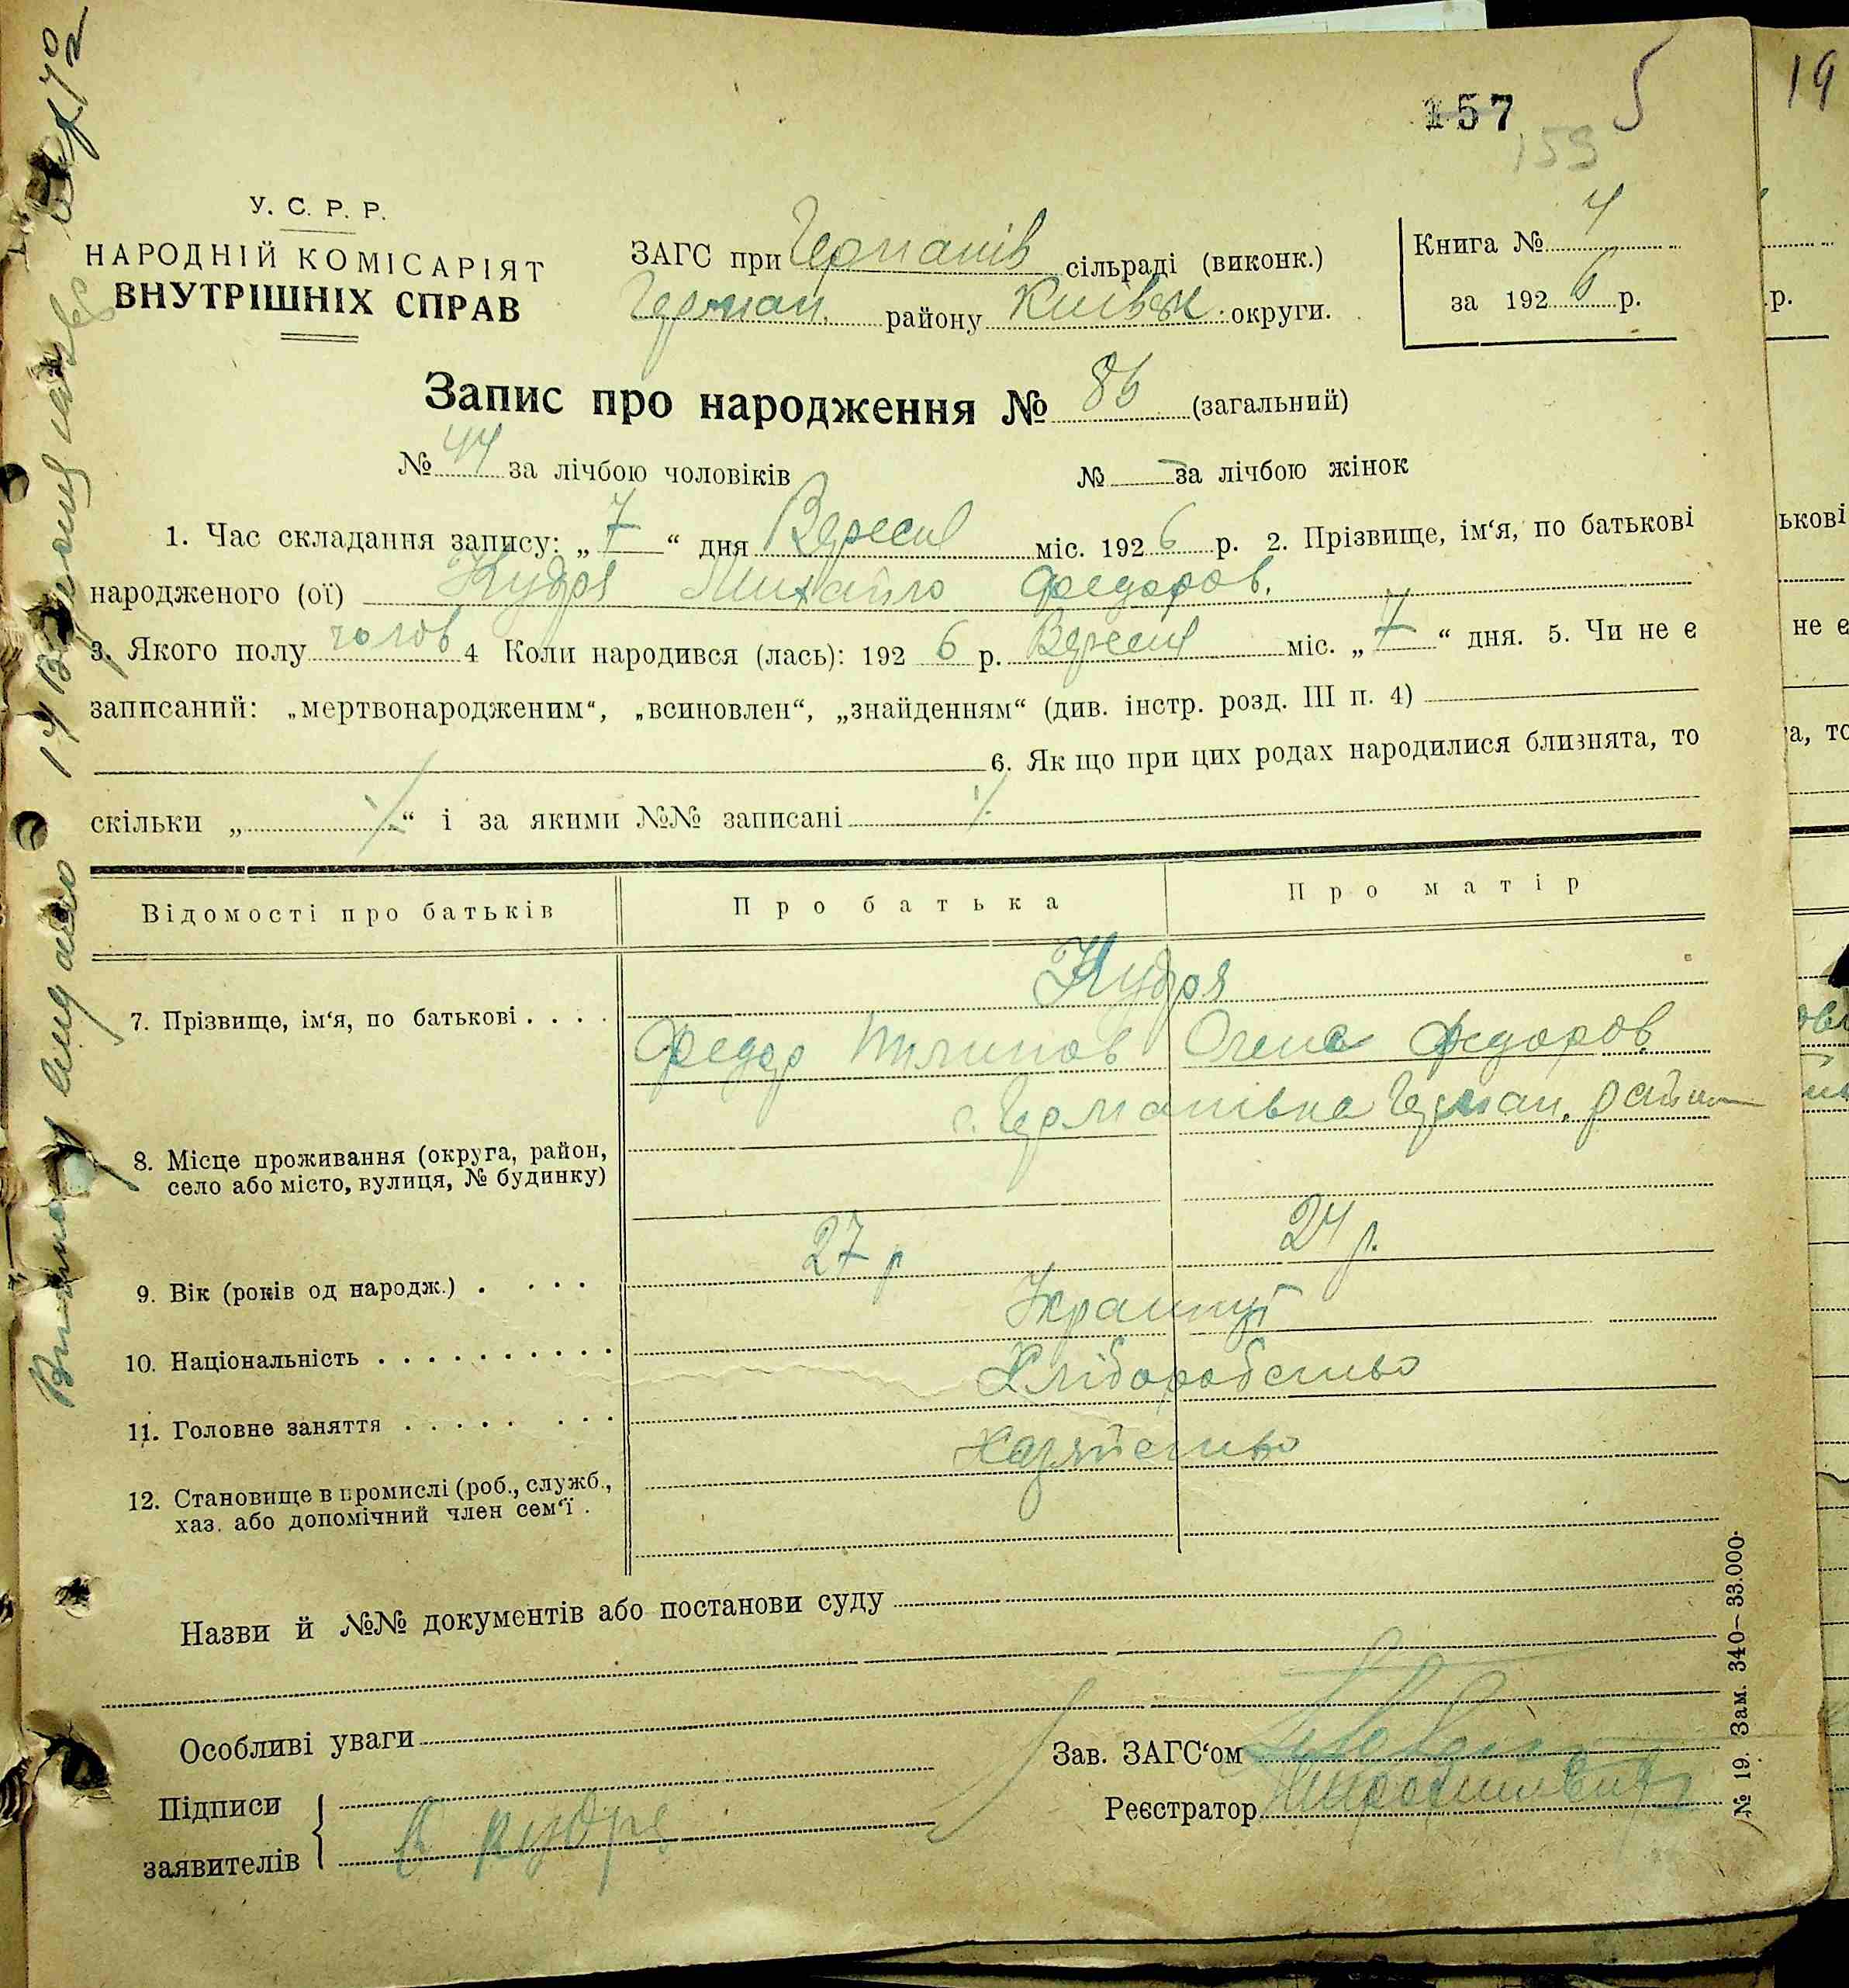 157
5
159
19
У. С. Р. Р.
НАРОДНІЙ КОМІСАРІЯТ
ВНУТРІШНІХ СПРАВ
ЗАГС при Германів сільраді (виконк.)
Герман. району Київськ. округи.
Книга № 4
за 1926 р.
Запис про народження № 86 (загальний)
№ 44 за лічбою чоловіків № — за лічбою жінок
1. Час складання запису: „7“ дня Вересня міс. 1926 р. 2. Прізвище, ім‘я, по батькові
народженого (ої) Кудря Михайло Федоров.
3. Якого полу чолов 4 Коли народився (лась): 1926 р. Вересня міс. „7“ дня. 5. Чи не є
записаний: „мертвонародженим“, „всиновлен“, „знайденням“ (див. інстр. розд. III п. 4)
6. Як що при цих родах народилися близнята, то
скільки „ “ і за якими №№ записані
Відомості про батьків Про батька Про матір
Кудря
7. Прізвище, ім‘я, по батькові . . . .
Федор Пилипов Олена Федоров
с. Германівка Герман. район
8. Місце проживання (округа, район,
село або місто, вулиця, № будинку)
27 р 24 р.
9. Вік (років од народж.) . . . .
10. Національність . . . . . . . . . .
Хліборобство
11. Головне заняття . . . . . . . .
Хазяйство
12. Становище в промислі (роб., служб.,
хаз. або допомічний член сем‘ї .
Назви й №№ документів або постанови суду
Особливі уваги
Зав. ЗАГС‘ом
Підписи
Реєстратор
заявителів
Кудря
№ 19. Зам. 340—33.000.
ькові
не є
а, то
р.